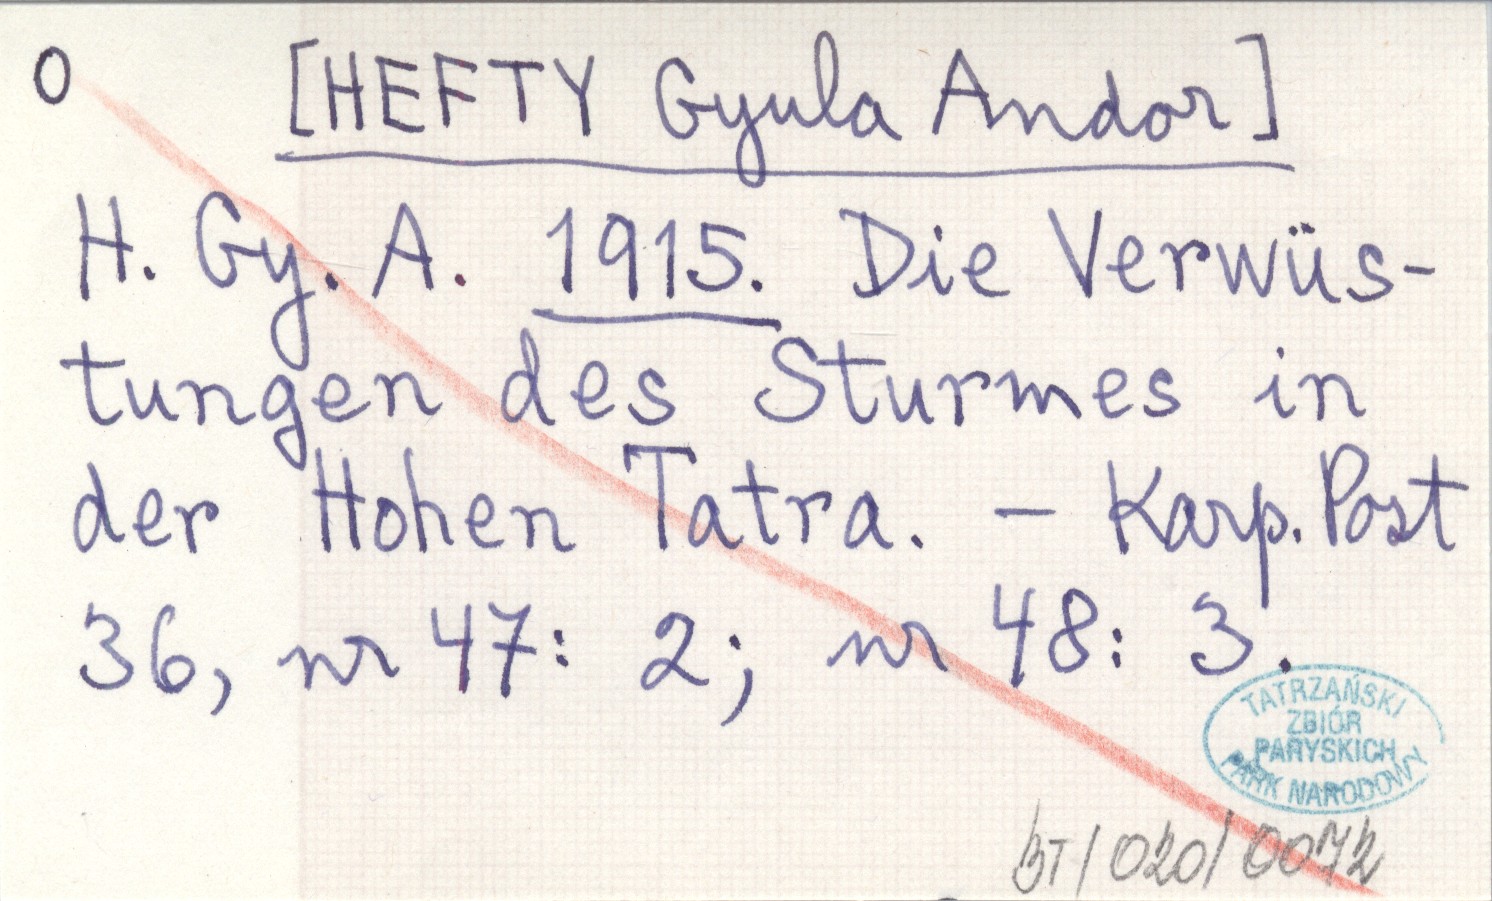 O [HEFTY Gyula Andor]
H. Gy. A. 1915. Die Verwüs-
tungen des Sturmes in
der Hohen Tatra. – Karp. Post
36, nr 47: 2; nr 48: 3.
TATRZAŃSKI
ZBIÓR
PARYSKICH
PARK NARODOWY
BT/020/0072